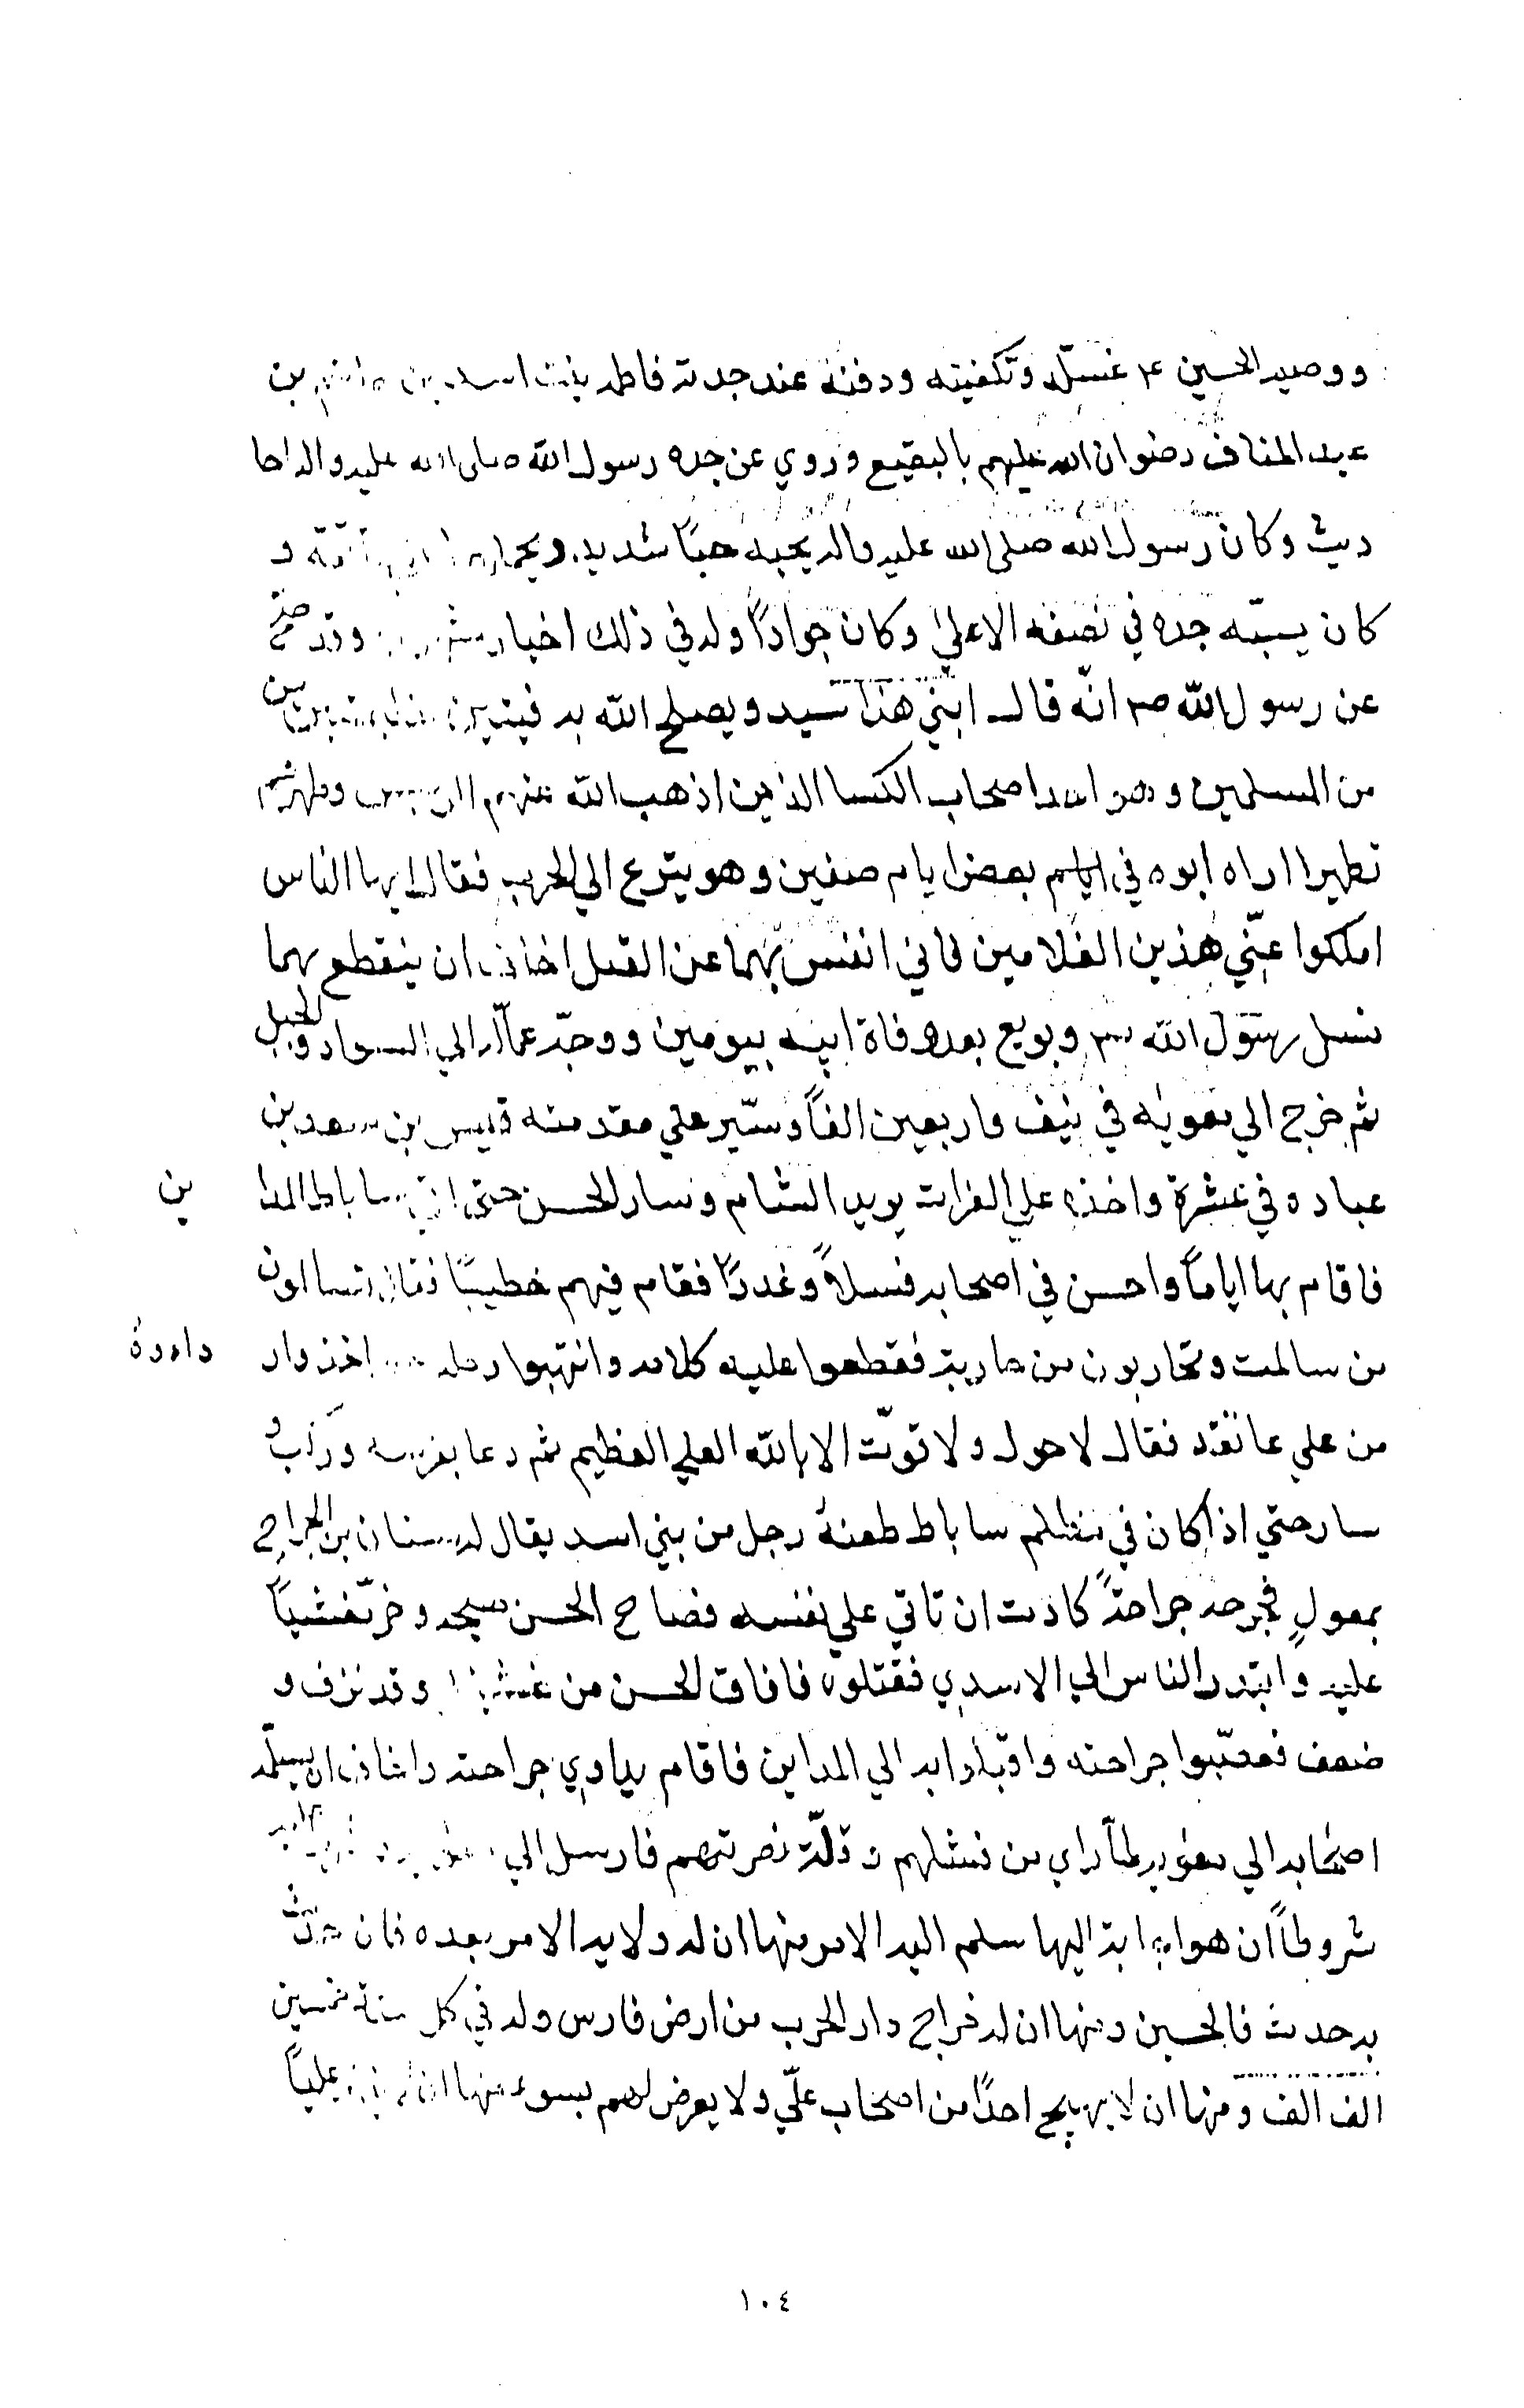 ووصيه الحسين ع م غسله وتكفينه ودفنه عند جدته فاطمه بنت اسد بن هاشم بن
عبد المناف رضوان الله عليهم بالبقيع وروي عن جده رسول الله صلى الله عليه واله احا
ديث وكان رسول الله صلى الله عليه واله يحبه حبًا شديدا ويحمله و
كان يسبّه جده في نصفه الاعلي وكان جوادًا وله في ذلك اخبار وقد صح
عن رسول الله صم انّه قال ابني هذا سيد ويصلح الله به فيتين من
من المسلمين وهو احد اصحاب الكسا الذين اذهب الله عنهم الرجس وطهرهم
تطهيرا اراه ابوه في بعض ايام صفين وهو يترع الي الحرب فقال ايها الناس
املكوا عنّي هذين الغلامين فاني انفس بهما عن القتل اخاف ان ينقطع بهما
نسل رسول الله صم وبويع بعد وفاة ابيه بيومين ووجّه عمّاله الي السواد والجبل
ثم خرج الي معويه في نيف واربعين الفًا وسيّر علي مقدمته قيس بن سعد بن
عباده في عشرة واخذ علي الفرات يريد الشام وسار الحسن حتي اتي ساباط المدا ين
فاقام بها ايامًا واحسن في اصحابه فسلاً وغدرًا فقام فيهم خطيبًا فقال تسالمون
من سالمت وتحاربون من حاربت فقطعوا عليه كلامه وانتهبوا رحله اخذ وار داءه
من علي عاتقه فقال لا حول ولا قوّت الا بالله العلي العظيم ثم دعا بفرسه وركب و
سار حتي اذا كان في مظلم ساباط طعنه رجل من بني اسد يقال له سنان بن الجراح
بمعولٍ فجرحه جراحةً كادت ان تاتي علي نفسه فصاح الحسن صيحه وخرّ مغشيًا
عليه وابتدر الناس الي الاسدي فقتلوه فافاق الحسن من غشيته وقد نزف و
ضعف فعصّبوا جراحته واقبلوا به الي المداين فاقام يداوي جراحته واخاف ان يسلّمه
اصحابه الي معويه لمّا راي من فشلهم و قلّة نصرتهم فارسل الي معويه
شروطًا ان هو اجابه اليها سلم اليه الامر منها ان له ولايه الامر بعده فان حدث
به حدث فالحسين ومنها ان له خراج دار الحرب من ارض فارس وله في كل سنة خمسين
الف الف ومنها ان لا يهيج احدًا من اصحاب عليّ ولا يعرض لهم بسوء منها ان عليًا
١٠٤